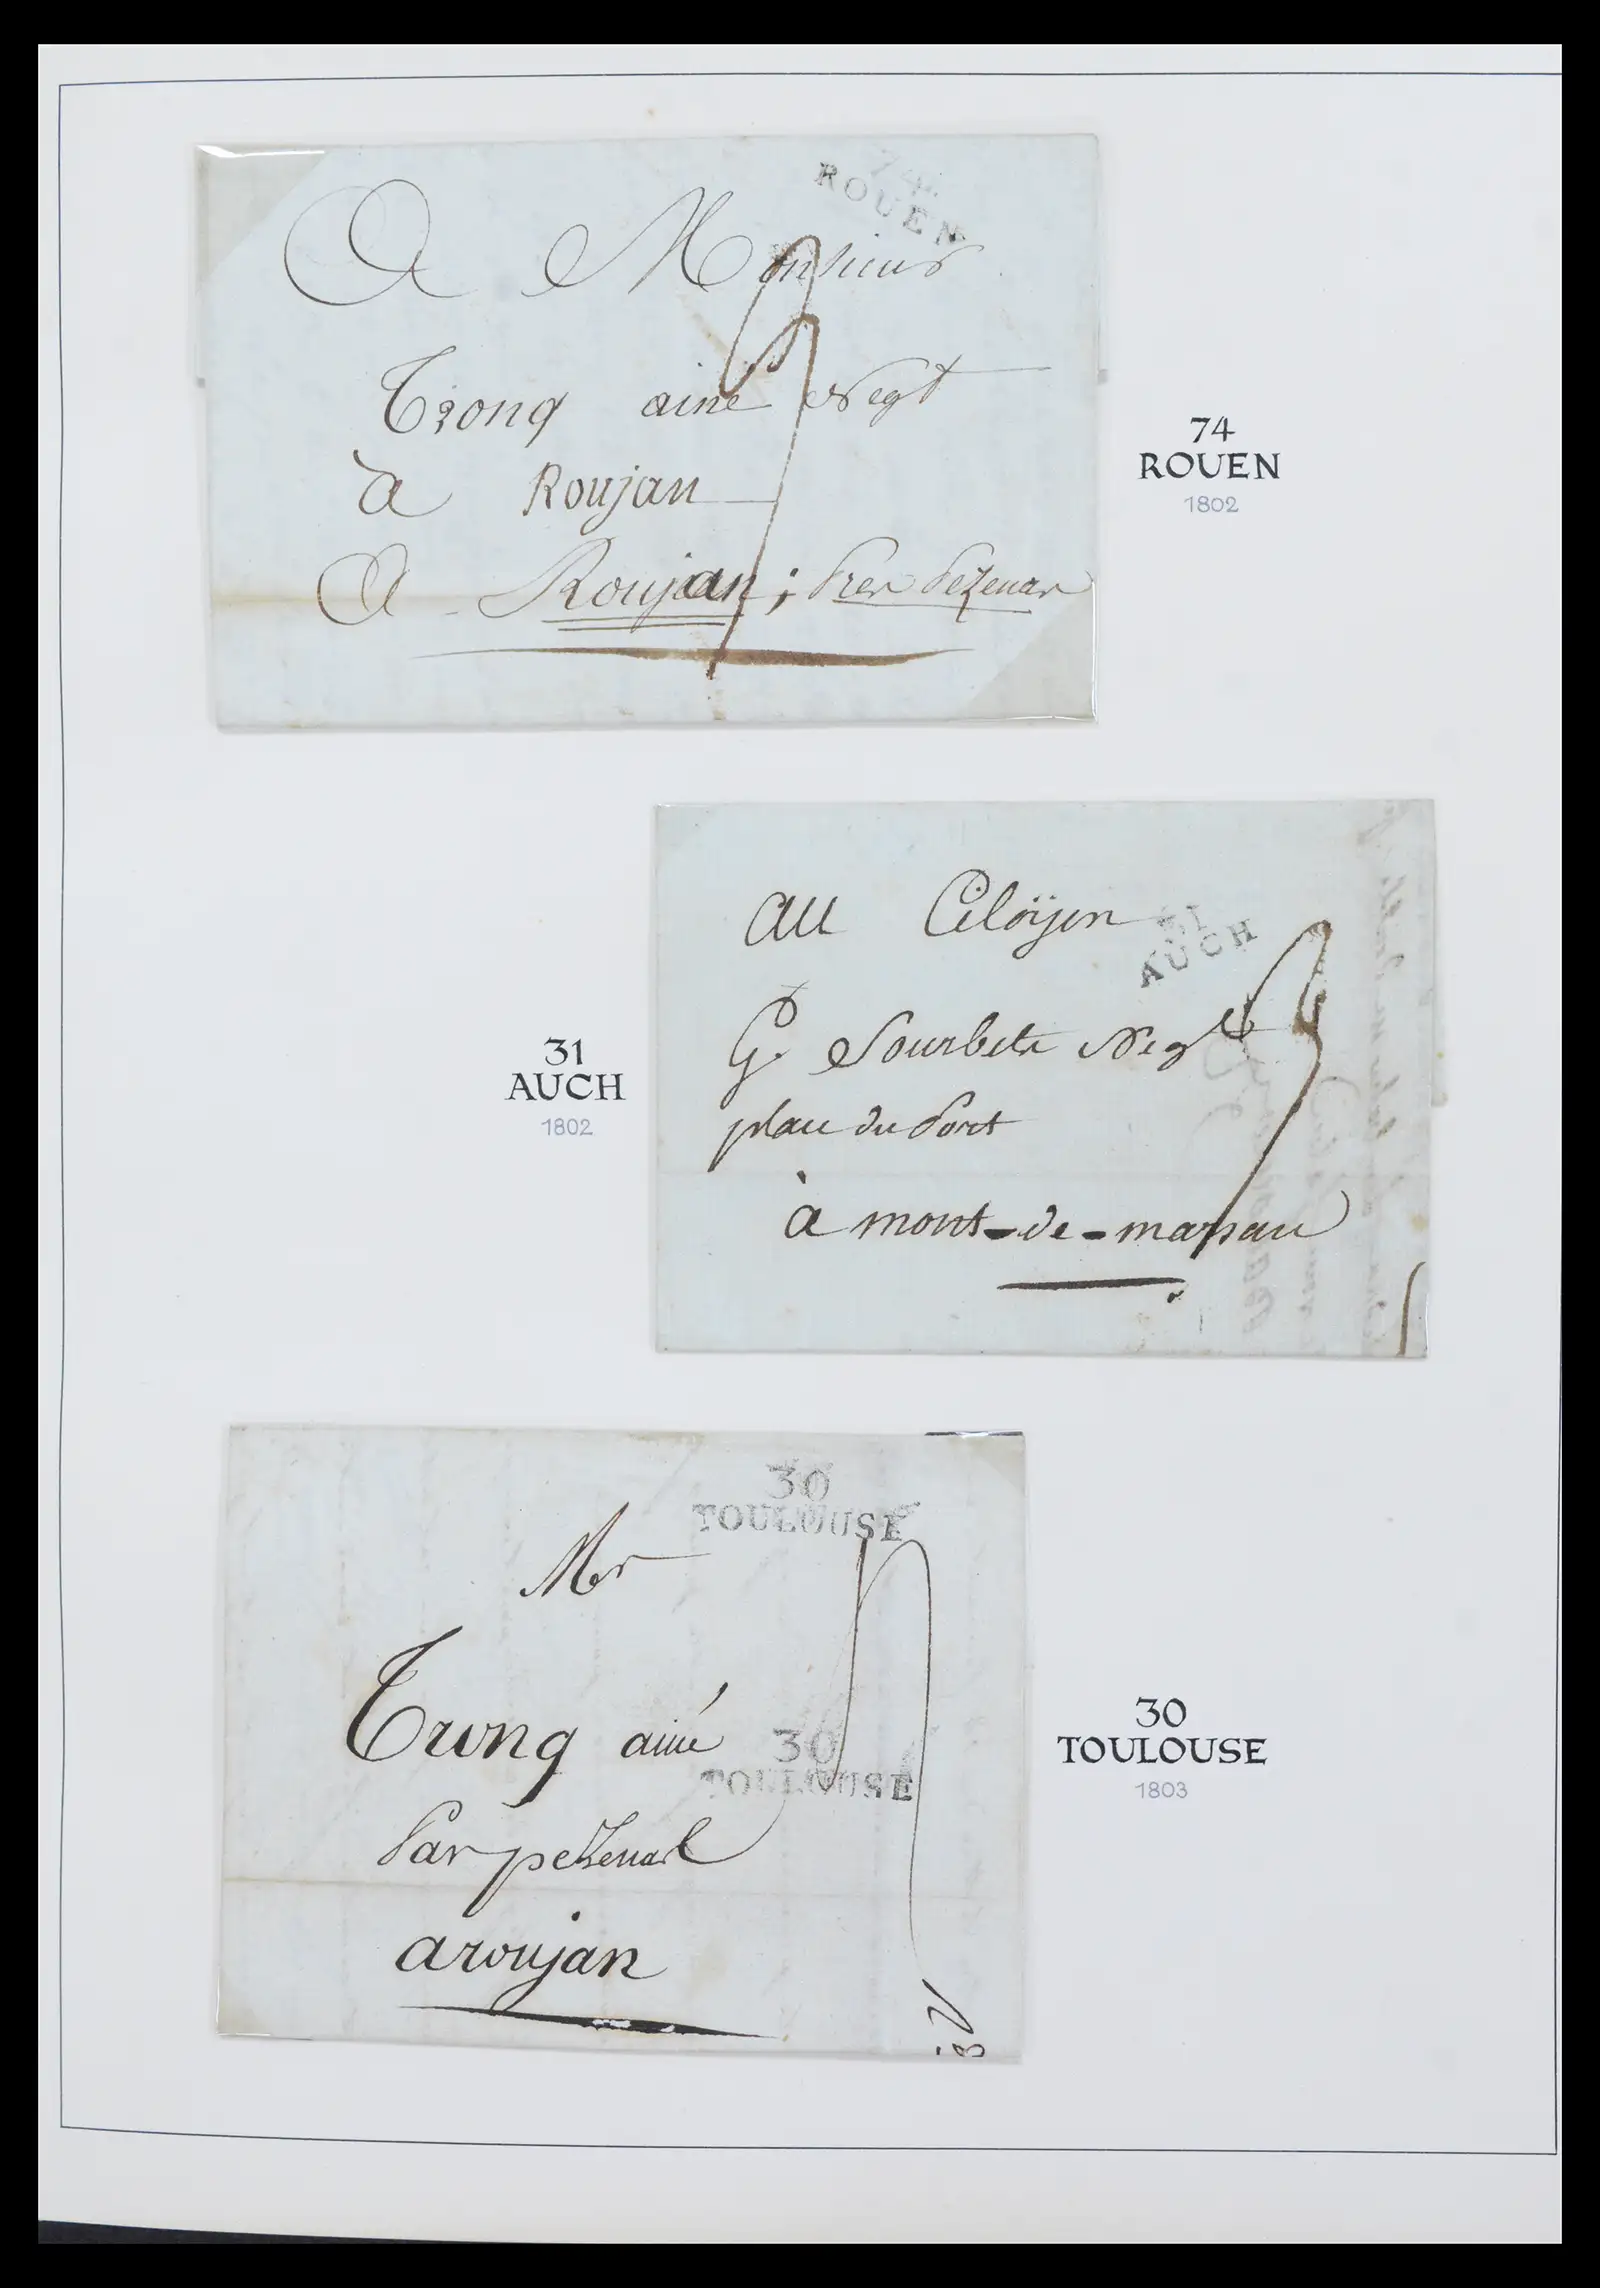 74
ROUEN
A Monsieur
Tronq ainé Negt
à Roujan
A Roujan; Près Pezenas
74
ROUEN
1802
au Citoÿen
31
AUCH
G. Sourbets Negt
place du Port
à mont-de-marsan
31
AUCH
1802
30
TOULOUSE
Mr
Tronq ainé
30
TOULOUSE
Par pezenas
a roujan
30
TOULOUSE
1803